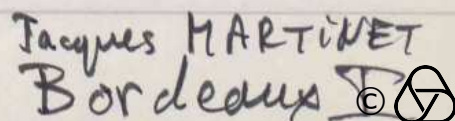 Jacques MARTINET
Bordeaux I
©